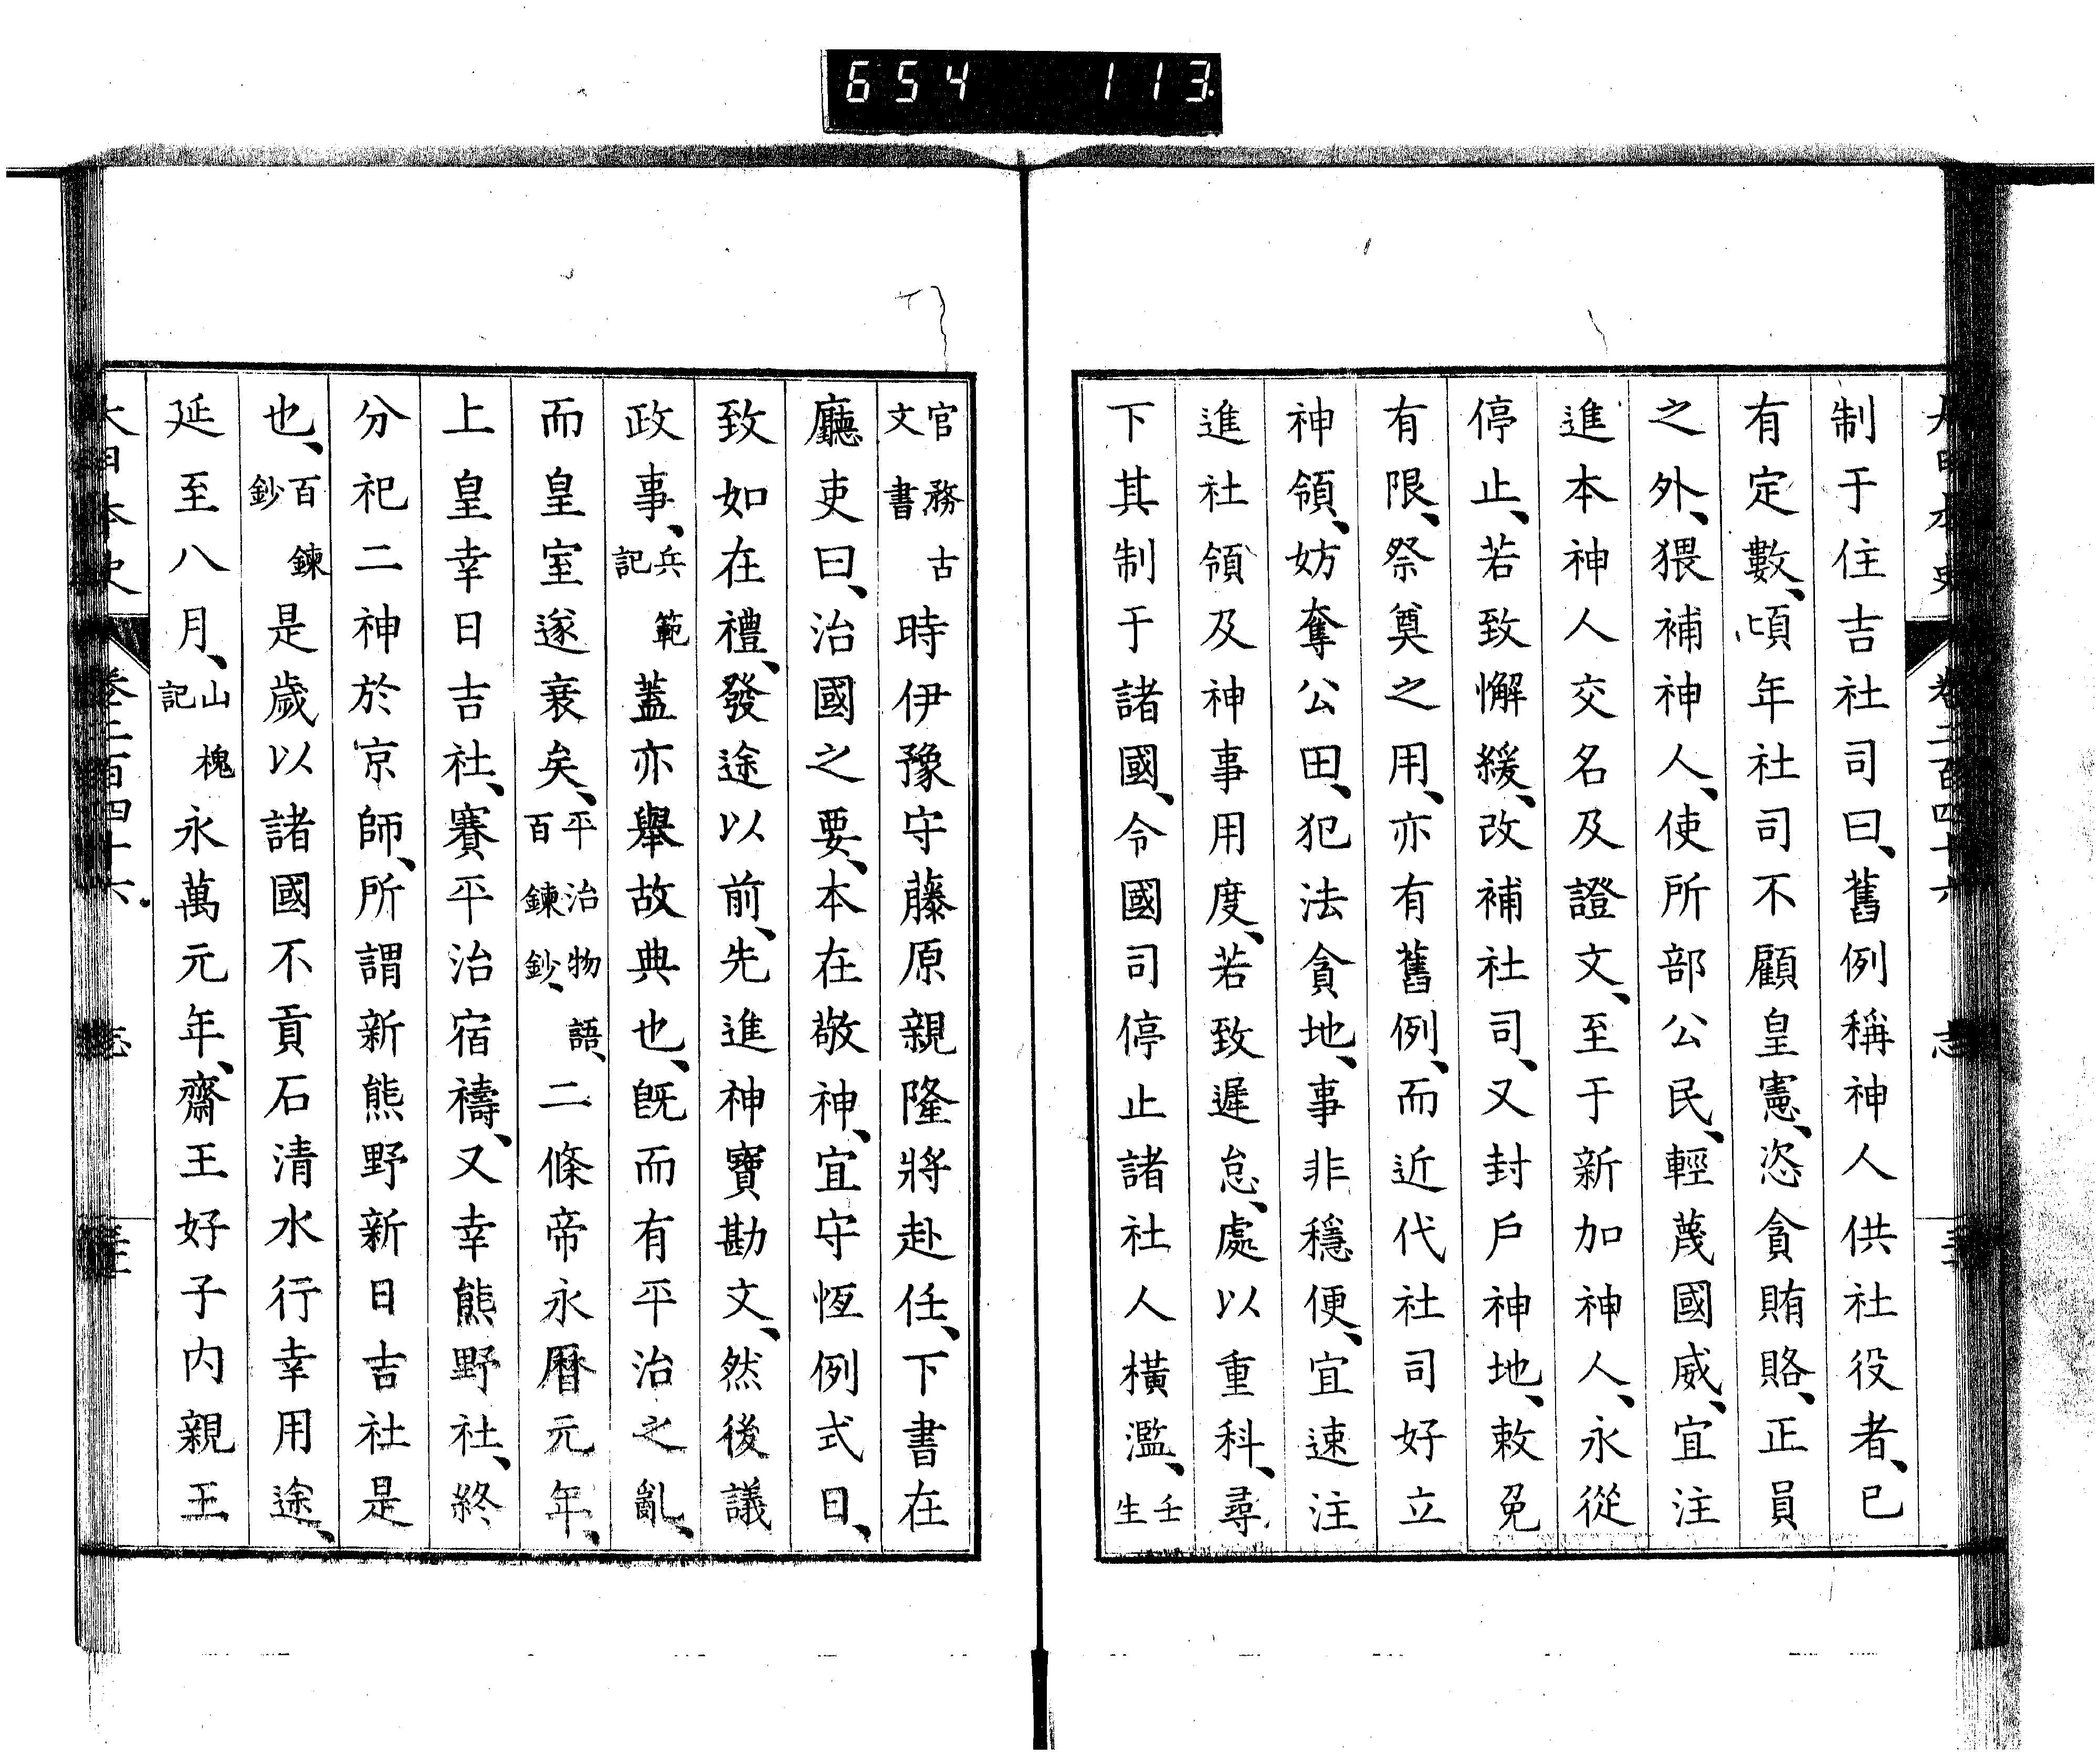 654 113
大日本史 卷二百四十六 志
制于住吉社司曰、舊例稱神人供社役者、已
有定數、頃年社司不顧皇憲、恣貪賄賂、正員
之外、猥補神人、使所部公民、輕蔑國威、宜注
進本神人交名及證文、至于新加神人、永從
停止、若致懈緩、改補社司、又封戶神地、敕免
有限、祭奠之用、亦有舊例、而近代社司好立
神領、妨奪公田、犯法貪地、事非穩便、宜速注
進社領及神事用度、若致遲怠、處以重科、尋
下其制于諸國、令國司停止諸社人橫濫、壬生
官務古文書時伊豫守藤原親隆將赴任、下書在
廳吏曰、治國之要、本在敬神、宜守恆例式日、
致如在禮、發途以前、先進神寶勘文、然後議
政事、兵範記蓋亦舉故典也、既而有平治之亂、
而皇室遂衰矣、平治物語、百鍊鈔、二條帝永曆元年、
上皇幸日吉社、賽平治宿禱、又幸熊野社、終
分祀二神於京師、所謂新熊野新日吉社是
也、百鍊鈔是歲以諸國不貢石清水行幸用途、
延至八月、山槐記永萬元年、齋王好子內親王
大日本史 卷二百四十六 志